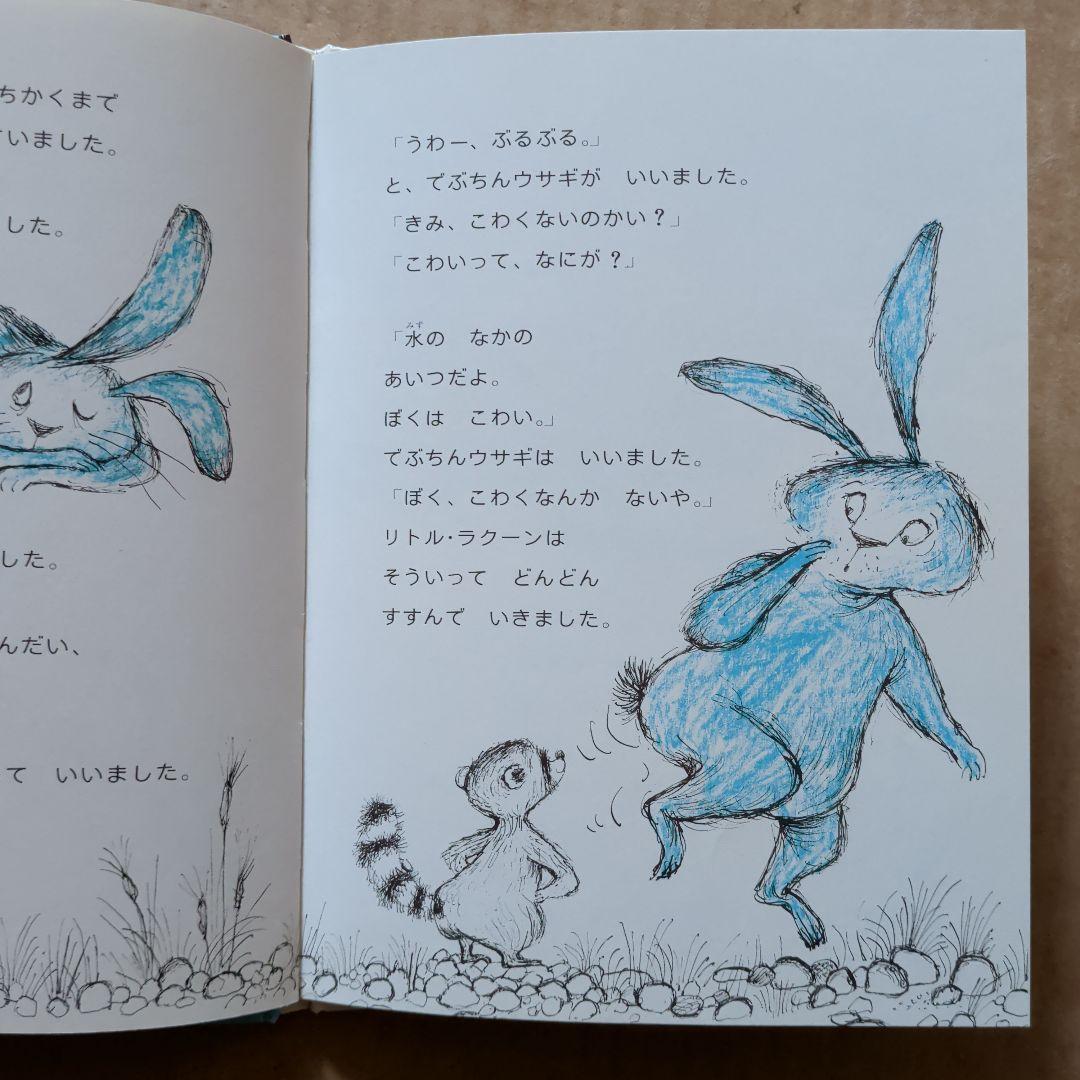 ちかくまで
いました。
した。
した。
んだい、
て　いいました。
「うわー、ぶるぶる。」
と、でぶちんウサギが　いいました。
「きみ、こわくないのかい？」
「こわいって、なにが？」
みず
「水の　なかの
あいつだよ。
ぼくは　こわい。」
でぶちんウサギは　いいました。
「ぼく、こわくなんか　ないや。」
リトル・ラクーンは
そういって　どんどん
すすんで　いきました。